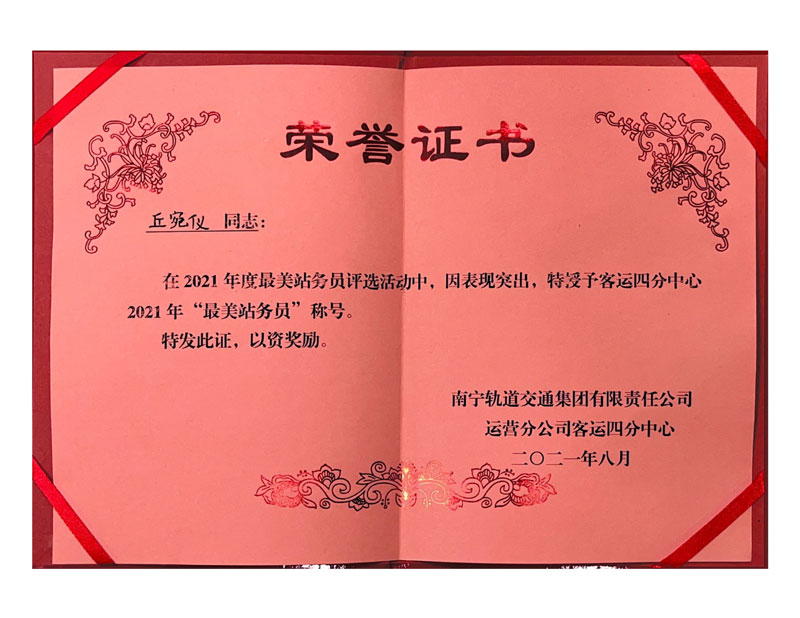 荣誉证书
丘宛仪 同志：
在 2021 年度最美站务员评选活动中，因表现突出，特授予客运四分中心
2021 年“最美站务员”称号。
特发此证，以资奖励。
南宁轨道交通集团有限责任公司
运营分公司客运四分中心
二〇二一年八月